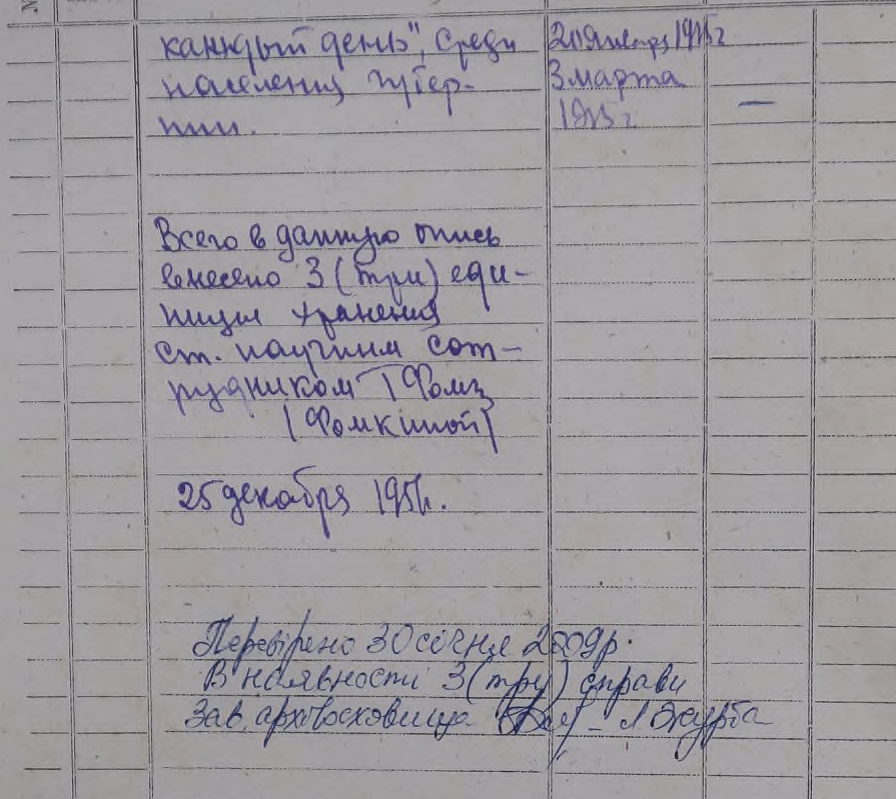 №
каждый день", среди
населения губер-
нии.
20 января 1915 г
3 марта
1915 г
—
Всего в данную опись
внесено 3 (три) еди-
ницы хранения
ст. научным сот-
рудником
(Фомкиной)
25 декабря
Перевірено 30 січня 2009 р.
В наявності 3 (три) справи
Зав. архівосховища Л Журба